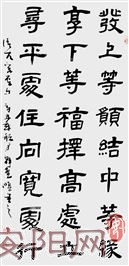 發上等願結中等緣
享下等福擇高處立
尋平處住向寬處行
安阳网